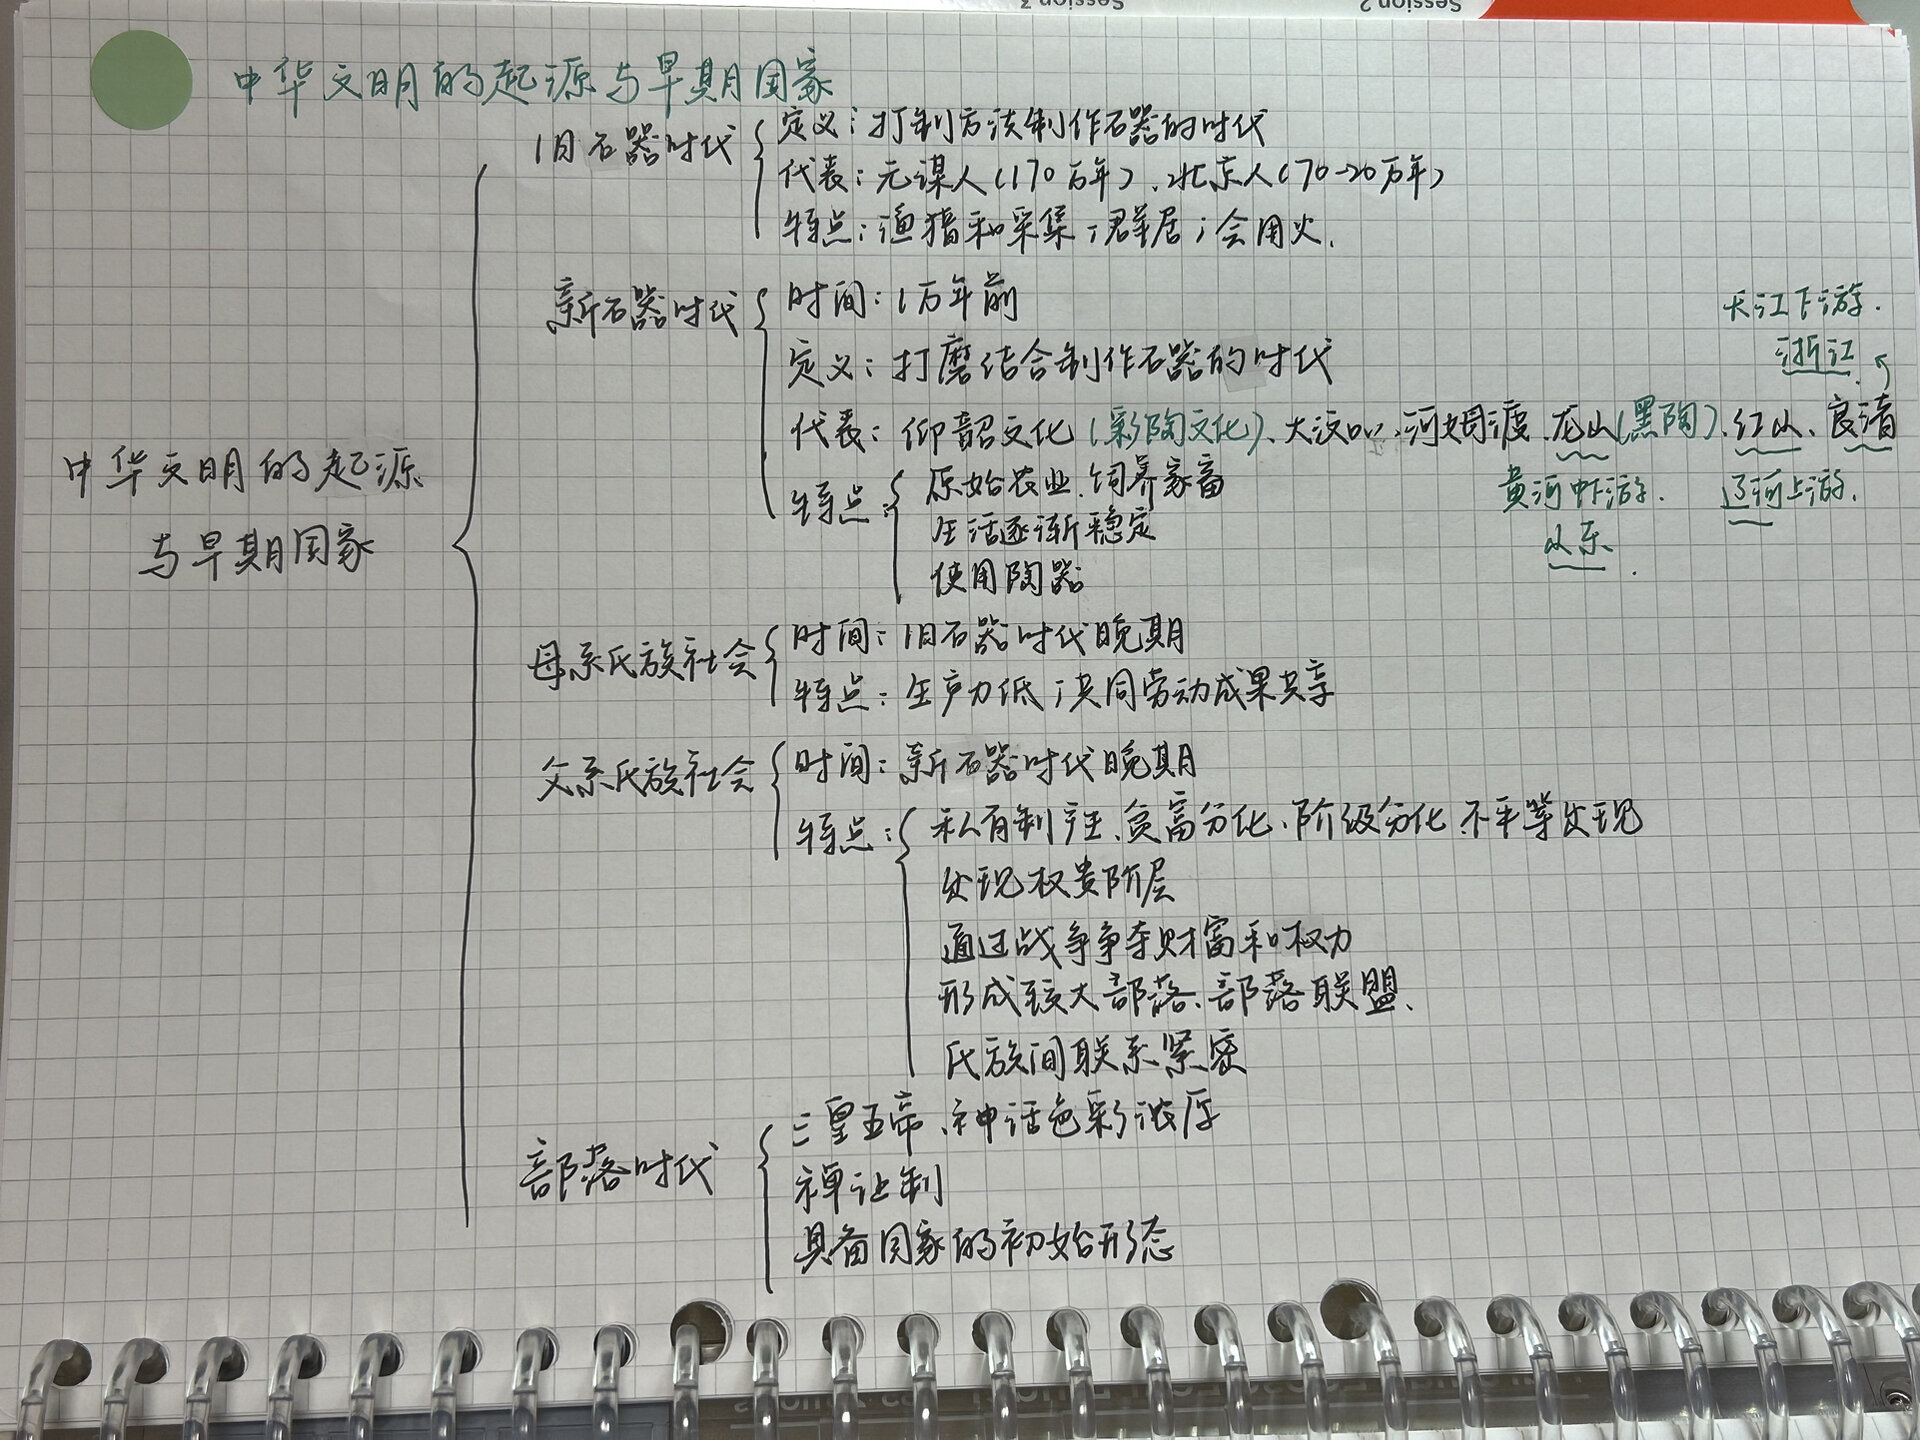 Session 3
Session 2
中华文明的起源与早期国家
中华文明的起源
与早期国家
旧石器时代
定义：打制方法制作石器的时代
代表：元谋人(170万年)、北京人(70-20万年)
特点：渔猎和采集；群居；会用火.
新石器时代
时间：1万年前
定义：打磨结合制作石器的时代
代表：仰韶文化(彩陶文化)、大汶口、河姆渡、龙山(黑陶)、红山、良渚
长江下游.
浙江
黄河中下游.
山东.
辽河上游.
特点：
原始农业、饲养家畜
生活逐渐稳定
使用陶器
母系氏族社会
时间：旧石器时代晚期
特点：生产力低；共同劳动成果共享
父系氏族社会
时间：新石器时代晚期
特点：
私有制产生、贫富分化、阶级分化、不平等出现
出现权贵阶层
通过战争争夺财富和权力
形成较大部落、部落联盟、
氏族间联系紧密
部落时代
三皇五帝、神话色彩浓厚
禅让制
具备国家的初始形态